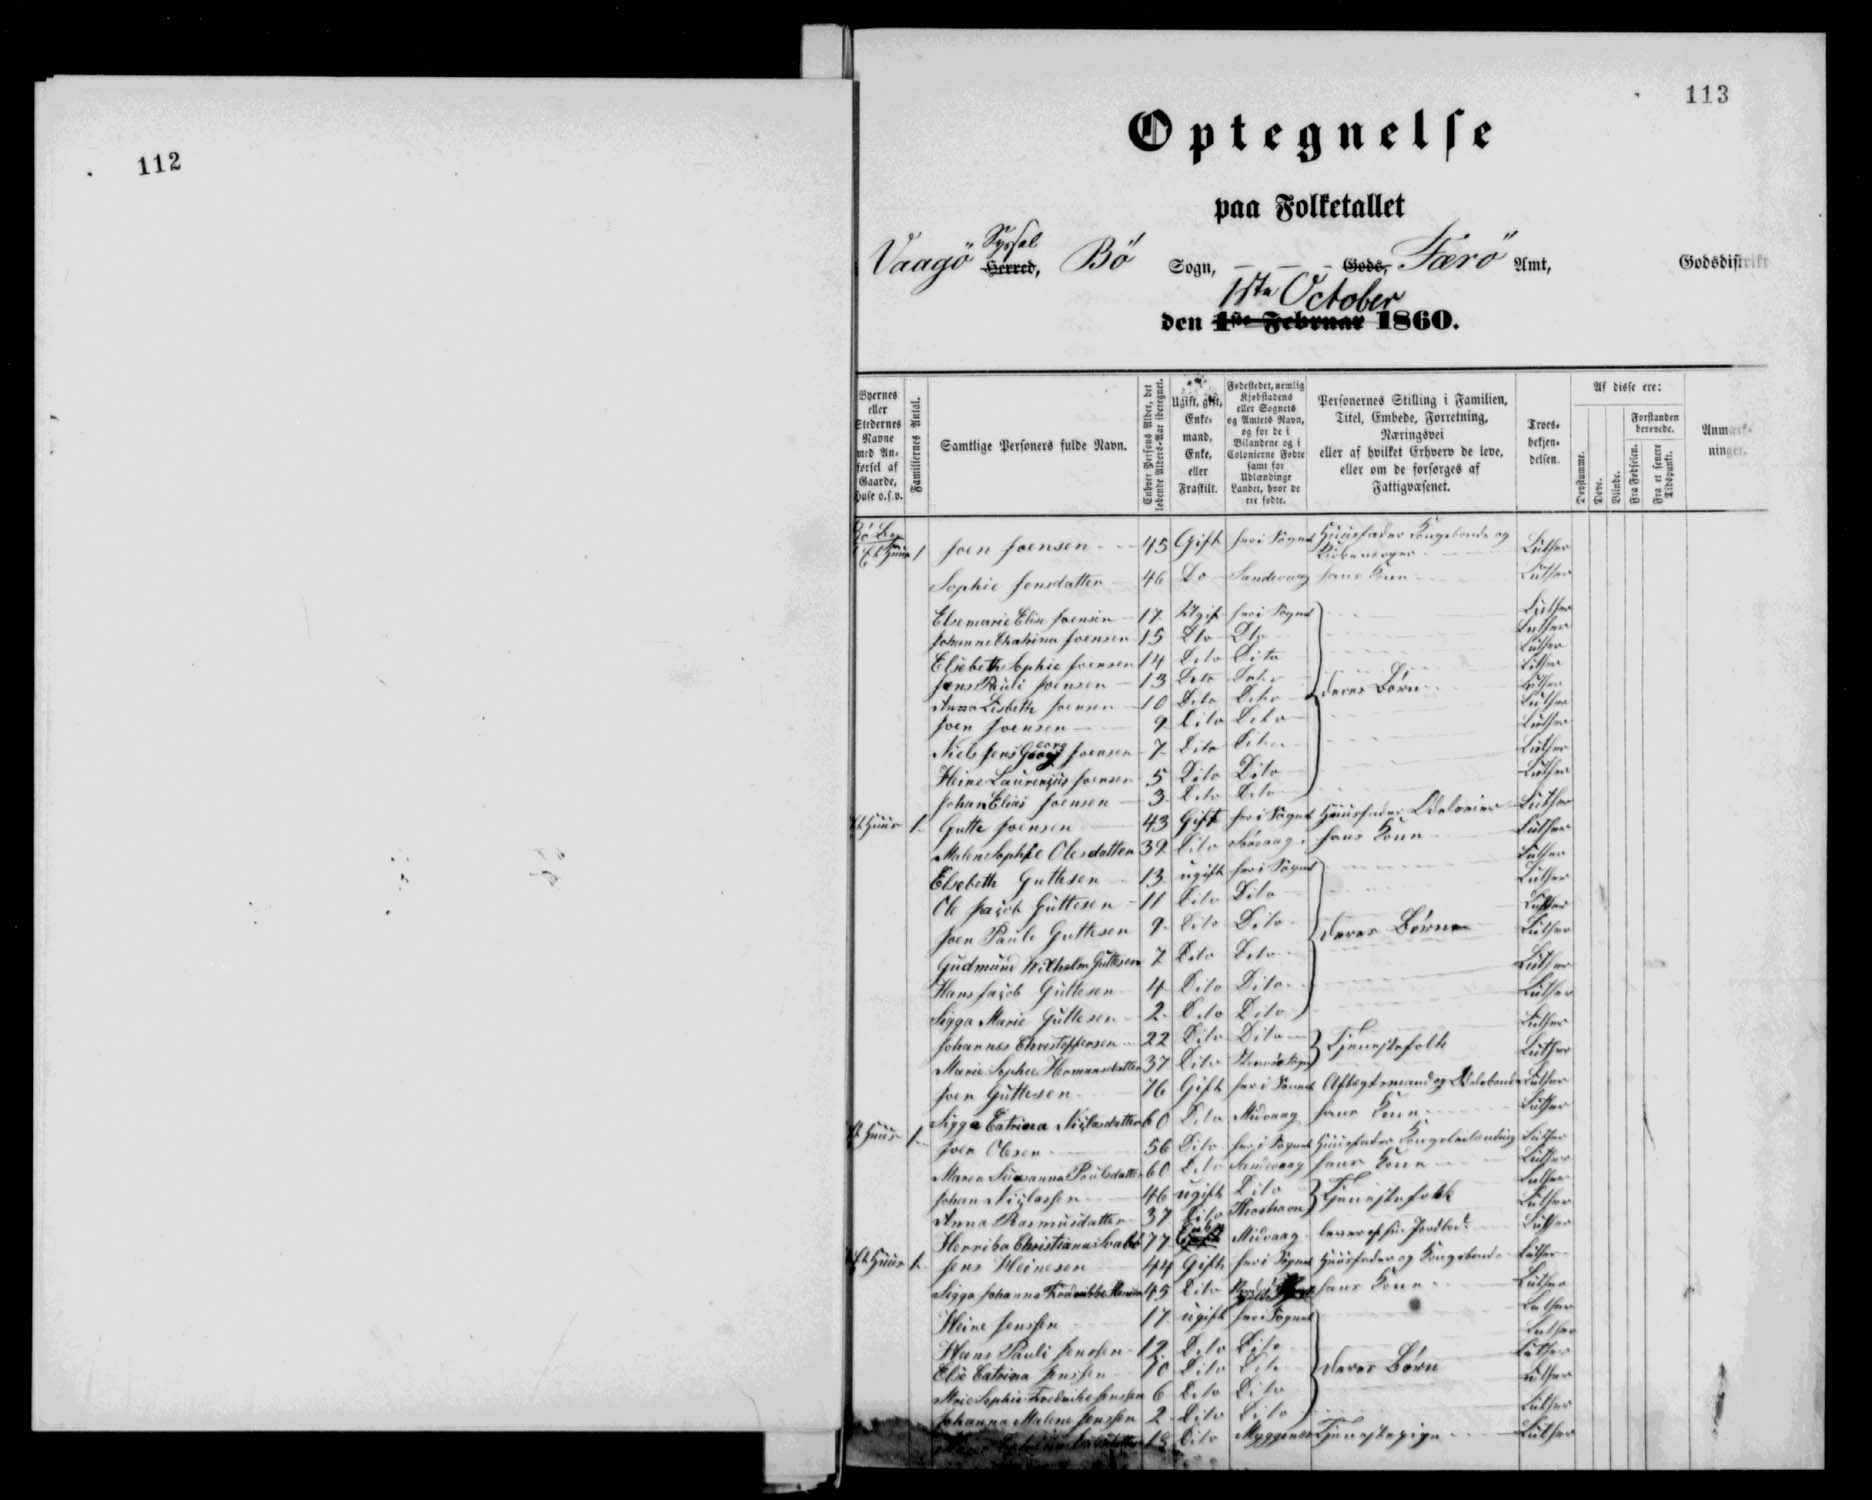 112
113
Optegnelse
paa Folketallet
Vaagö Syssel Herred, Bö Sogn, — — - Gods, Færö Amt, Godsdistrikt
1ste October
den 1ste Februar 1860.
Byernes eller Stedernes Navne med Anførsel af Gaarde, Huse o.s.v.
Familiernes Antal.
Samtlige Personers fulde Navn.
Enhver Persons Alder, det løbende Alders-Aar iberegnet.
Ugift, gift, Enkemand, Enke, eller Fraskilt.
Fødestedet, nemlig Kjøbstadens eller Sognets og Amtets Navn, og for de i Bilandene og i Colonierne Fødte samt for Udlændinge Landet, hvor de ere fødte.
Personernes Stilling i Familien, Titel, Embede, Forretning, Næringsvei eller af hvilket Erhverv de leve, eller om de forsørges af Fattigvæsenet.
Troesbekjendelsen.
Af disse ere:
Døvstumme.
Døve.
Blinde.
Forstanden berøvede.
Fra Fødselen.
Fra et senere Tidspunkt.
Anmærkninger.
Et Huus 1 Joen Joensen 45 Gift her i Sognet Huusfader Kongsbonde og Luther
Sophie Jensdatter 46 Do Sandevaag hans Kone Luther
Elsemarie Elise Joensen 17 Ugift her i Sognet Luther
Johanne Chatrina Joensen 15 Dto Dto Luther
Elsebeth Sophie Joensen 14 Dito Dito Luther
Jens Pauli Joensen 13 Dito Dito Luther
Anna Lisbeth Joensen 10 Dito Dito deres Børn Luther
Joen Joensen 9 Dito Dito Luther
Niels Jens Georg Joensen 7 Dito Dito Luther
Heine Laurenzius Joensen 5 Dito Dito Luther
Johan Elias Joensen 3 Dito Dito Luther
Et Huus 1 Gutte Joensen 43 Gift her i Sognet Huusfader Luther
Malen Sophie Olesdatter 39 Dito Sörvaag hans Kone Luther
Elsebeth Guttesen 13 ugift her i Sognet Luther
Ole Jacob Guttesen 11 Dito Dito Luther
Joen Pauli Guttesen 9 Dito Dito deres Børn Luther
Gudmund Wilhelm Guttesen 7 Dito Dito Luther
Hans Jacob Guttesen 4 Dito Dito Luther
Sigga Marie Guttesen 2 Dito Dito Luther
Johannes Christoffersen 22 Dito Dito Tjenestefolk Luther
Marie Sophie Hermansdatter 37 Dito Luther
Joen Guttesen 76 Gift her i Sognet Aftægtsmand og Luther
Sigga Catrina Niclasdatter 60 Dito Midvaag hans Kone Luther
Et Huus 1 Joen Olesen 56 Dito her i Sognet Huusfader Luther
Maren Susanna Poulsdatter 60 Dito Sandevaag hans Kone Luther
Johan Niclassen 46 ugift Dito Tjenestefolk Luther
Anna Rasmusdatter 37 Dito Thorshavn Luther
Christianna 77 Enke Midvaag lever af sin Jordlod Luther
Et Huus 1 Jens Heinesen 44 Gift her i Sognet Huusfader og Kongsbonde Luther
Sigga Johanna 45 Dito hans Kone Luther
Heine Jenssen 17 ugift her i Sognet Luther
Hans Pauli Jenssen 12 Dito Dito Luther
Else Catrina Jenssen 10 Dito Dito deres Børn Luther
Sophie Frederike Jenssen 6 Dito Dito Luther
Johanna Malene Jenssen 2 Dito Dito Luther
18 Dito Myggenes Tjenestepige Luther